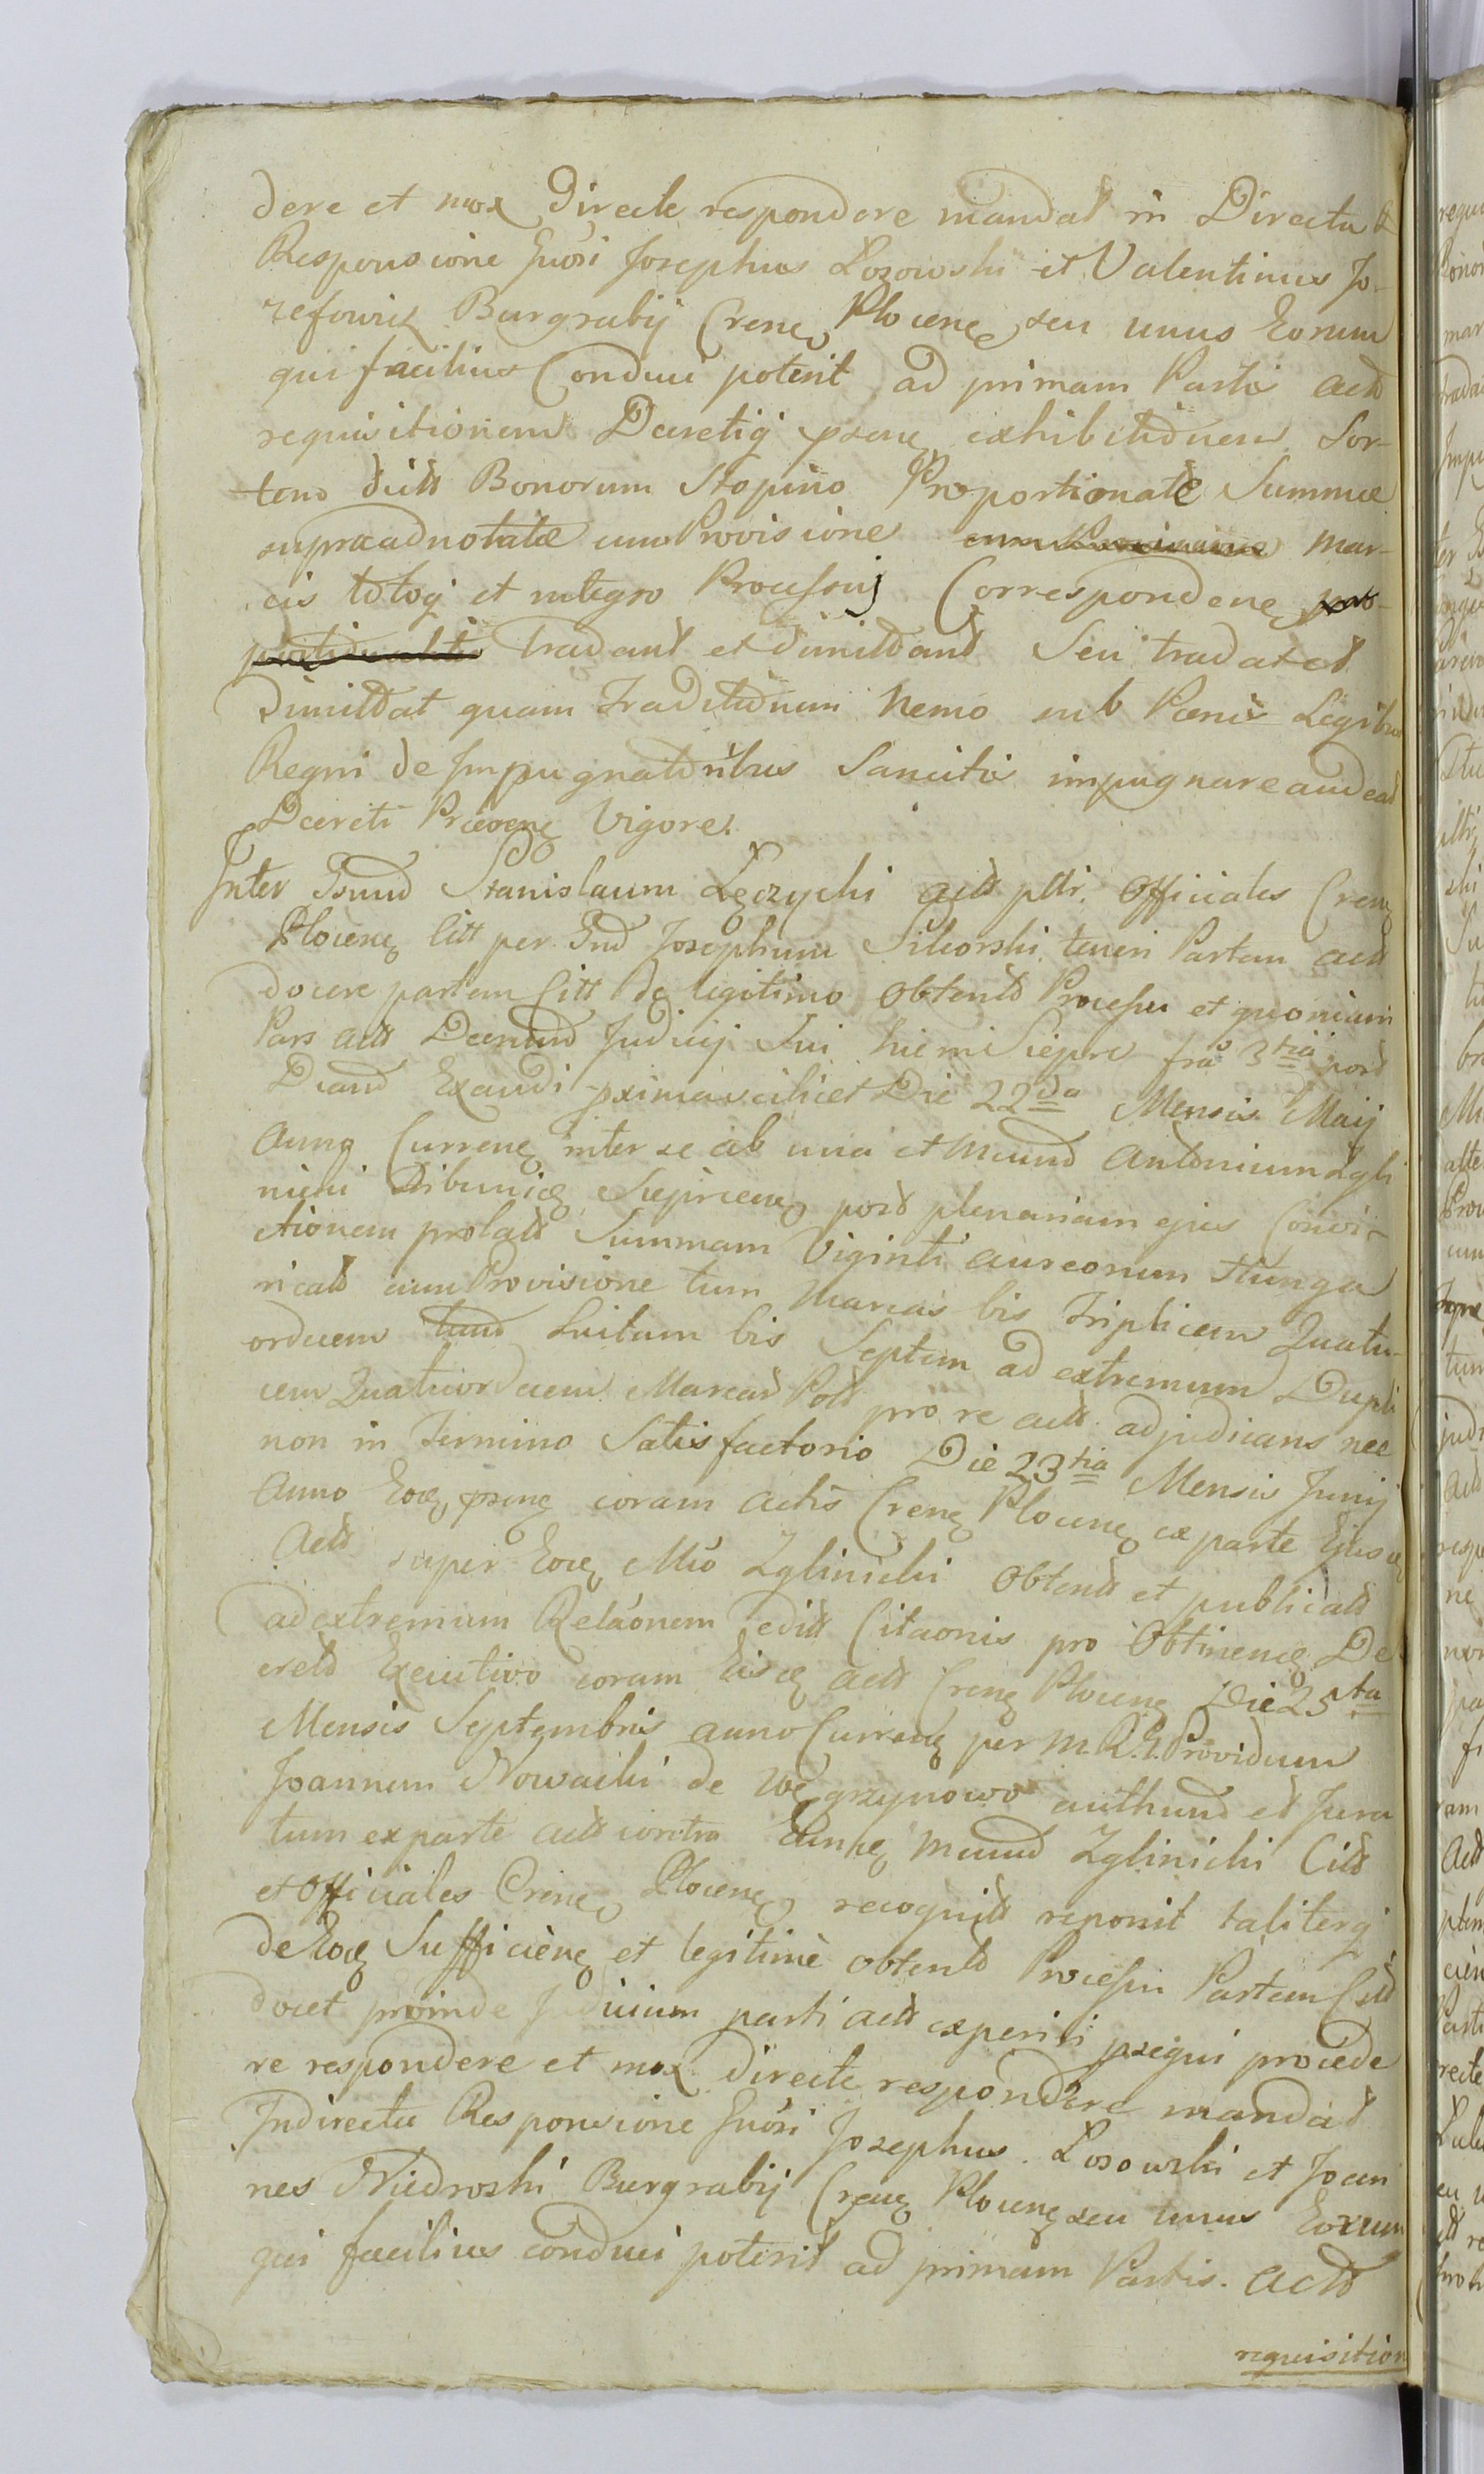 dere et mox Directe respondere mandat in Directa
Responsione Gnosi Josephus Losowski et Valentinus Jo-
zefowicz Burgrabij Crenẽ Plocenẽ seu unus Eorum
qui facilius Conduci poterit ad primam Partis actt
requisitionem Decretiq psenẽ exhibitionem Sor-
tem dictt Bonorum Stopino Proportionate Summæ
supraadnotatæ cum Provisione cum Provisione mar-
cis totoq et integro Processuj Correspondenẽ pro-
portionaliter tradant et dimittant Seu tradat et
Dimittat quam Traditionem Nemo sub Pœnis Legibus
Regni de Impugnatoribus Sancitis impugnare audeat
Decreti Præsenẽ Vigore.
Inter Gnud Stanislaum Łęczycki actt ptti. Officiales Crenẽ
Plocenẽ Citt per Gnd Josephum Sikorski teneri Partem actt
docere partem Citt de legitimo Obtento Processu et quoniam
Pars actt Decretud Judicij Sui hicmi Siepre fra 3tia post
Dicam Exaudi pxima scilicet Die 22da Mensis Maij
Anno Currenẽ inter se ab una et Mcund Antonium Zgli
nicki Tribunidẽ Sieprcenẽ post plenariam ejus Convi-
ctionem prolatt Summam Viginti aureorum Hunga
ricatt cum Provisione tum Marcas bis Triplicem Quatu-
ordecem tum Luitum bis Septem ad extremum Dupli
cem Quatuordecem Marcas Poll pro re actt adjudicans nec
non in Termino Satisfactorio Die 23tia Mensis Junij
Anno Eodẽ psenẽ coram actis Crenẽ Plocenẽ ex parte Ejusdẽ
Actt super Eodẽ Mco Zglinicki Obtentt et publicatt
ad extremum Relãonem edictt Citãonis pro Obtinenẽ De
creto Executivo coram Eisdẽ actt Crenẽ Plocenẽ Die 25ta
Mensis Septembris anno Currenẽ per M.R.G. Providum
Joannem Nowacki de Węgrzynowo authund et Jura
tum ex parte actt contra Eundẽ Mcund Zglinicki Citt
et Officiales Crenẽ Plocenẽ recognitt reponit taliterq
de Eodẽ Sufficienẽ et legitime obtento Processu Partem Citt
docet proinde Judicium parti actt experiri psequi procede
re respondere et mox directe respondere mandat
Indirecta Responsione Gnosi Josephus Losowski et Joan
nes Niedroski Burgrabij Crenẽ Plocenẽ seu unus Eorum
qui facilius conduci poterit ad primam Partis. actt
requisition